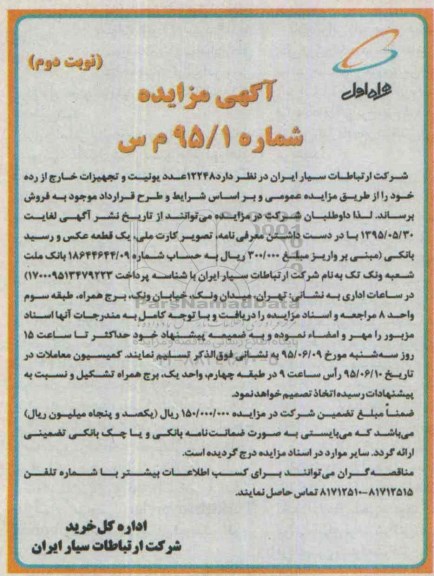 (نوبت دوم)
همراه اول
آگهی مزایده
شماره ۹۵/۱ م س
شرکت ارتباطات سیار ایران در نظر دارد ۱۲۲۴۸ عدد یونیت و تجهیزات خارج از رده
خود را از طریق مزایده عمومی و بر اساس شرایط و طرح قرارداد موجود به فروش
برساند. لذا داوطلبان شرکت در مزایده می‌توانند از تاریخ نشر آگهی لغایت
۱۳۹۵/۰۵/۳۰ با در دست داشتن معرفی نامه، تصویر کارت ملی، یک قطعه عکس و رسید
بانکی (مبنی بر واریز مبلغ ۳۰۰/۰۰۰ ریال به حساب شماره ۱۸۶۴۴۶۴۴/۰۹ بانک ملت
شعبه ونک تک به نام شرکت ارتباطات سیار ایران با شناسه پرداخت ۱۷۰۰۰۹۵۱۳۴۷۹۲۲۳)
در ساعات اداری به نشانی: تهران، میدان ونک، خیابان ونک، برج همراه، طبقه سوم
واحد ۸ مراجعه و اسناد مزایده را دریافت و با توجه کامل به مندرجات آنها اسناد
مزبور را مهر و امضاء نموده و به ضمیمه پیشنهاد خود حداکثر تا ساعت ۱۵
روز سه‌شنبه مورخ ۹۵/۰۶/۰۹ به نشانی فوق‌الذکر تسلیم نمایند. کمیسیون معاملات در
تاریخ ۹۵/۰۶/۱۰ رأس ساعت ۹ در طبقه چهارم، واحد یک، برج همراه تشکیل و نسبت به
پیشنهادات رسیده اتخاذ تصمیم خواهد نمود.
ضمناً مبلغ تضمین شرکت در مزایده ۱۵۰/۰۰۰/۰۰۰ ریال (یکصد و پنجاه میلیون ریال)
می‌باشد که می‌بایستی به صورت ضمانت‌نامه بانکی و یا چک بانکی تضمینی
ارائه گردد. سایر موارد در اسناد مزایده درج گردیده است.
مناقصه‌گران می‌توانند برای کسب اطلاعات بیشتر با شماره تلفن
۸۱۷۱۲۵۱۵-۸۱۷۱۲۵۱۰ تماس حاصل نمایند.
اداره کل خرید
شرکت ارتباطات سیار ایران
ParsNamadData